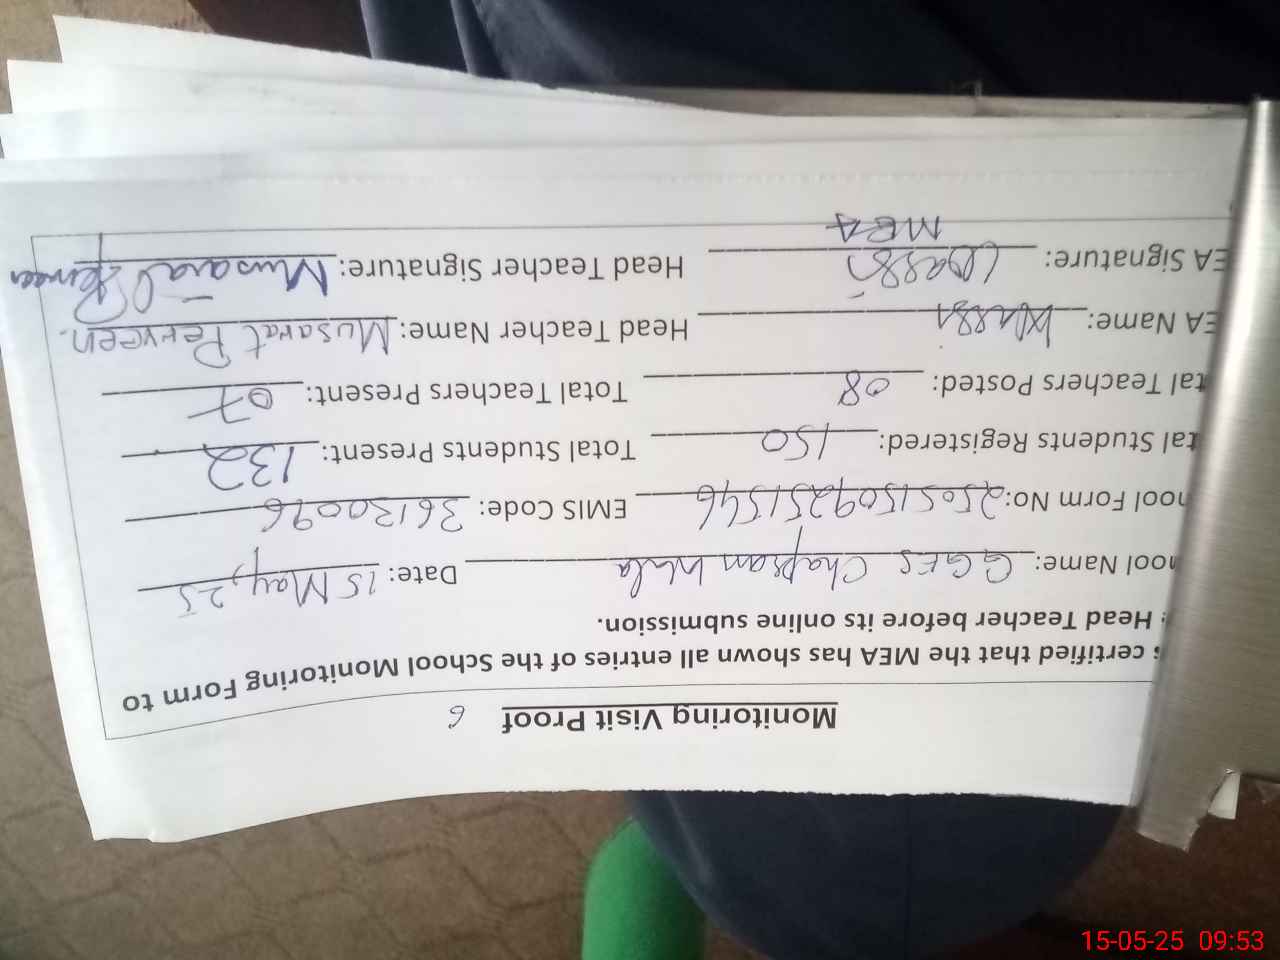 Monitoring Visit Proof 6
certified that the MEA has shown all entries of the School Monitoring Form to
Head Teacher before its online submission.
ool Name: GGES Chapsan Wala Date: 15 May, 25
ool Form No: 25051509251546 EMIS Code: 36130096
tal Students Registered: 150 Total Students Present: 132
tal Teachers Posted: 08 Total Teachers Present: 07
EA Name: Head Teacher Name: Musarat Perveen.
EA Signature: Head Teacher Signature: Musarat Perveen
MEA
15-05-25 09:53